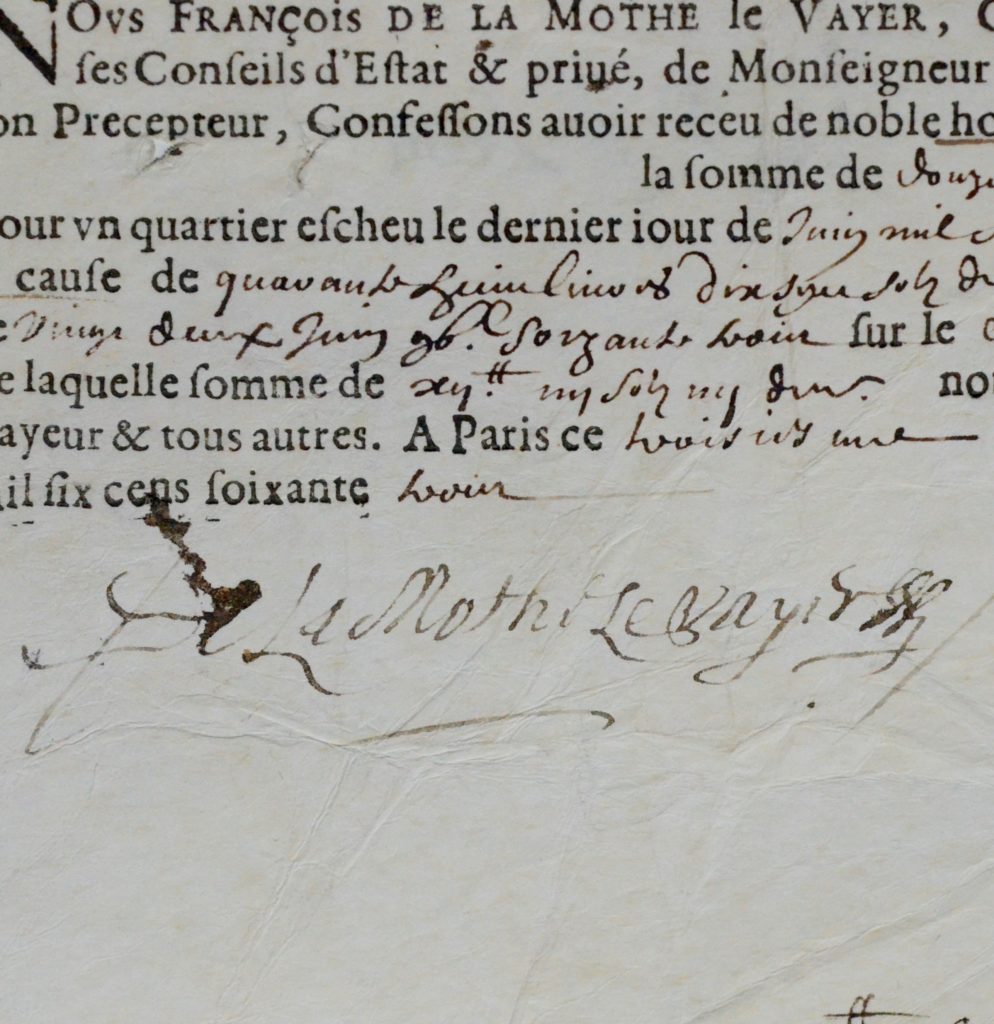 NOVS FRANÇOIS DE LA MOTHE le VAYER, C
ſes Conſeils d'Eſtat & priué, de Monſeigneur
on Precepteur, Confeſſons auoir receu de noble ho
la ſomme de douze
our vn quartier eſcheu le dernier iour de Juin mil
cauſe de quarante huict liures dix sept solz de
e Vingt deux Juin gbᶜ soixante trois ſur le
e laquelle ſomme de xij ₶ iiij solz iij den. no
ayeur & tous autres. A Paris ce troisiesme
il ſix cens ſoixante trois
De La Mothe Le Vayer